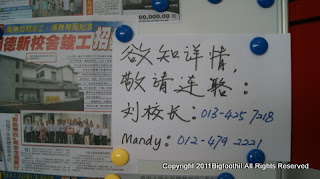 德新校舍竣工招
00,000.00
欲知详情,
敬请连络:
刘校长: 013-425 7218
Mandy: 012-479 2221
Copyright 2011Bigfoothil All Rights Reserved